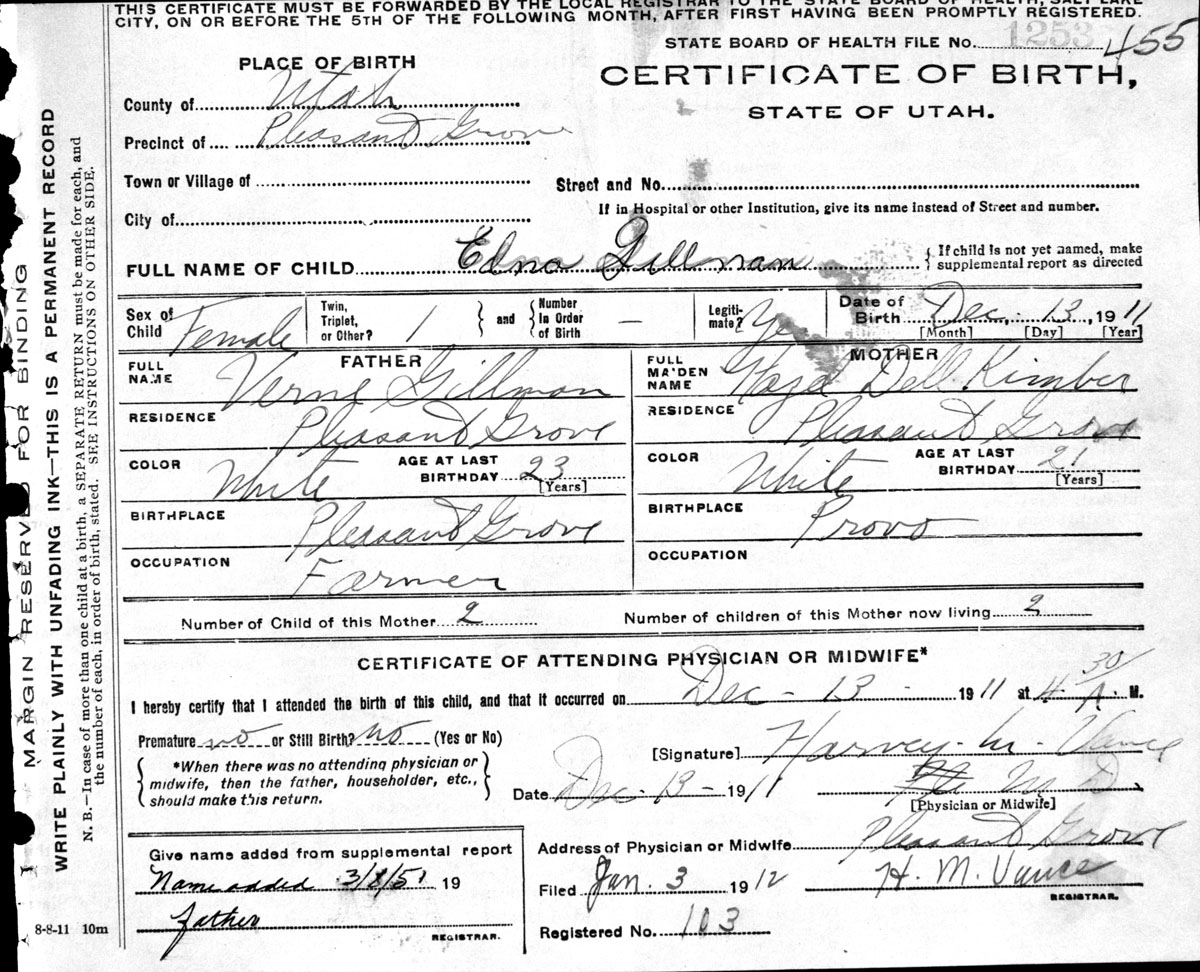 THIS CERTIFICATE MUST BE FORWARDED BY THE LOCAL REGISTRAR TO THE STATE BOARD OF HEALTH, SALT LAKE
CITY, ON OR BEFORE THE 5TH OF THE FOLLOWING MONTH, AFTER FIRST HAVING BEEN PROMPTLY REGISTERED.
STATE BOARD OF HEALTH FILE No. 1253 455
PLACE OF BIRTH
CERTIFICATE OF BIRTH,
STATE OF UTAH.
County of Utah
Precinct of Pleasant Grove
Town or Village of
Street and No.
City of
If in Hospital or other Institution, give its name instead of Street and number.
FULL NAME OF CHILD Edna Gillman
{ If child is not yet named, make
supplemental report as directed
Sex of Child Female
Twin, Triplet, or Other? 1
and
Number in Order of Birth —
Legitimate? Yes
Date of Birth Dec. 13, 1911
[Month] [Day] [Year]
FATHER
FULL NAME Verne Gillman
RESIDENCE Pleasant Grove
COLOR White AGE AT LAST BIRTHDAY 23
[Years]
BIRTHPLACE Pleasant Grove
OCCUPATION Farmer
MOTHER
FULL MAIDEN NAME Hazel Dell Kimber
RESIDENCE Pleasant Grove
COLOR White AGE AT LAST BIRTHDAY 21
[Years]
BIRTHPLACE Provo
OCCUPATION
Number of Child of this Mother 2 Number of children of this Mother now living 2
CERTIFICATE OF ATTENDING PHYSICIAN OR MIDWIFE*
I hereby certify that I attended the birth of this child, and that it occurred on Dec - 13 - 1911 at 4 30/A. M.
Premature no or Still Birth? no (Yes or No)
[Signature] Harvey M. Vance
*When there was no attending physician or
midwife, then the father, householder, etc.,
should make this return.
Date Dec - 13 - 1911 M D.
[Physician or Midwife]
Address of Physician or Midwife Pleasant Grove
Filed Jan. 3 1912 H. M. Vance
REGISTRAR.
Registered No. 103
Give name added from supplemental report
Name added 3/8/51 19
father
REGISTRAR.
8-8-11 10m
MARGIN RESERVED FOR BINDING
WRITE PLAINLY WITH UNFADING INK—THIS IS A PERMANENT RECORD
N. B.—In case of more than one child at a birth, a SEPARATE RETURN must be made for each, and
the number of each, in order of birth, stated. SEE INSTRUCTIONS ON OTHER SIDE.